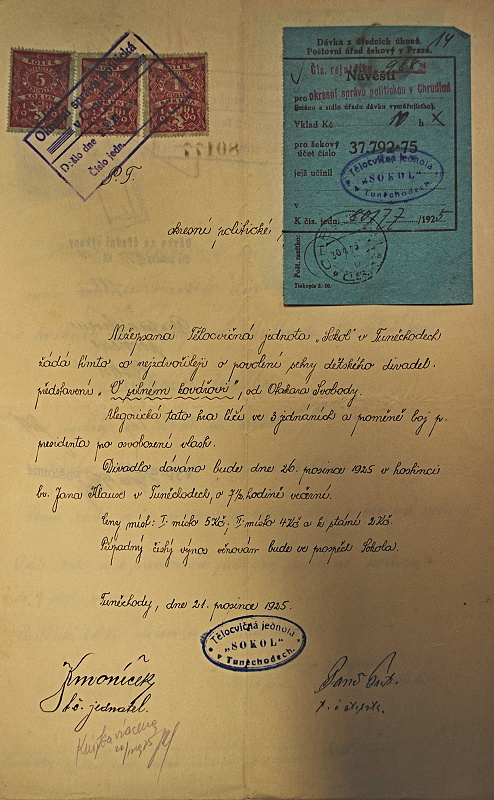 14
Dávka z úředních úkonů.
Poštovní úřad šekový v Praze.
Čís. rejstříku 988
Návěští
pro okresní správu politickou v Chrudimi
(jméno a sídlo úřadu dávku vyměřujícího).
Vklad Kč 10 h X
pro šekový účet číslo 37.792-75
jejž učinil
Tělocvičná jednota
„SOKOL"
v Tuněchodech.
v
K čís. jedn. 80177 /1925
Pošt. razítko:
Tiskopis č. 10.
5
5
1
Okresní správa politická
Došlo dne
Číslo jedn.
80177
P.T.
okresní politické
Nížepsaná Tělocvičná jednota „Sokol" v Tuněchodech
žádá tímto co nejzdvořileji o povolení sehry dětského divadel.
představení „O silném kovářovi", od Otakara Svobody.
Alegorická tato hra líčí ve 3 jednáních a poměně boj p.
presidenta po osvobození vlasti.
Divadlo dáváno bude dne 26. prosince 1925 v hostinci
br. Jana Klause v Tuněchodech, o 7½ hodině večerní.
Ceny míst: I. místo 5 Kč, II. místo 4 Kč a k stání 2 Kč.
Případný čistý výnos věnován bude ve prospěch Sokola.
Tuněchody, dne 21. prosince 1925.
Tělocvičná jednota
„SOKOL"
v Tuněchodech.
Kmoníček
t.č. jednatel.